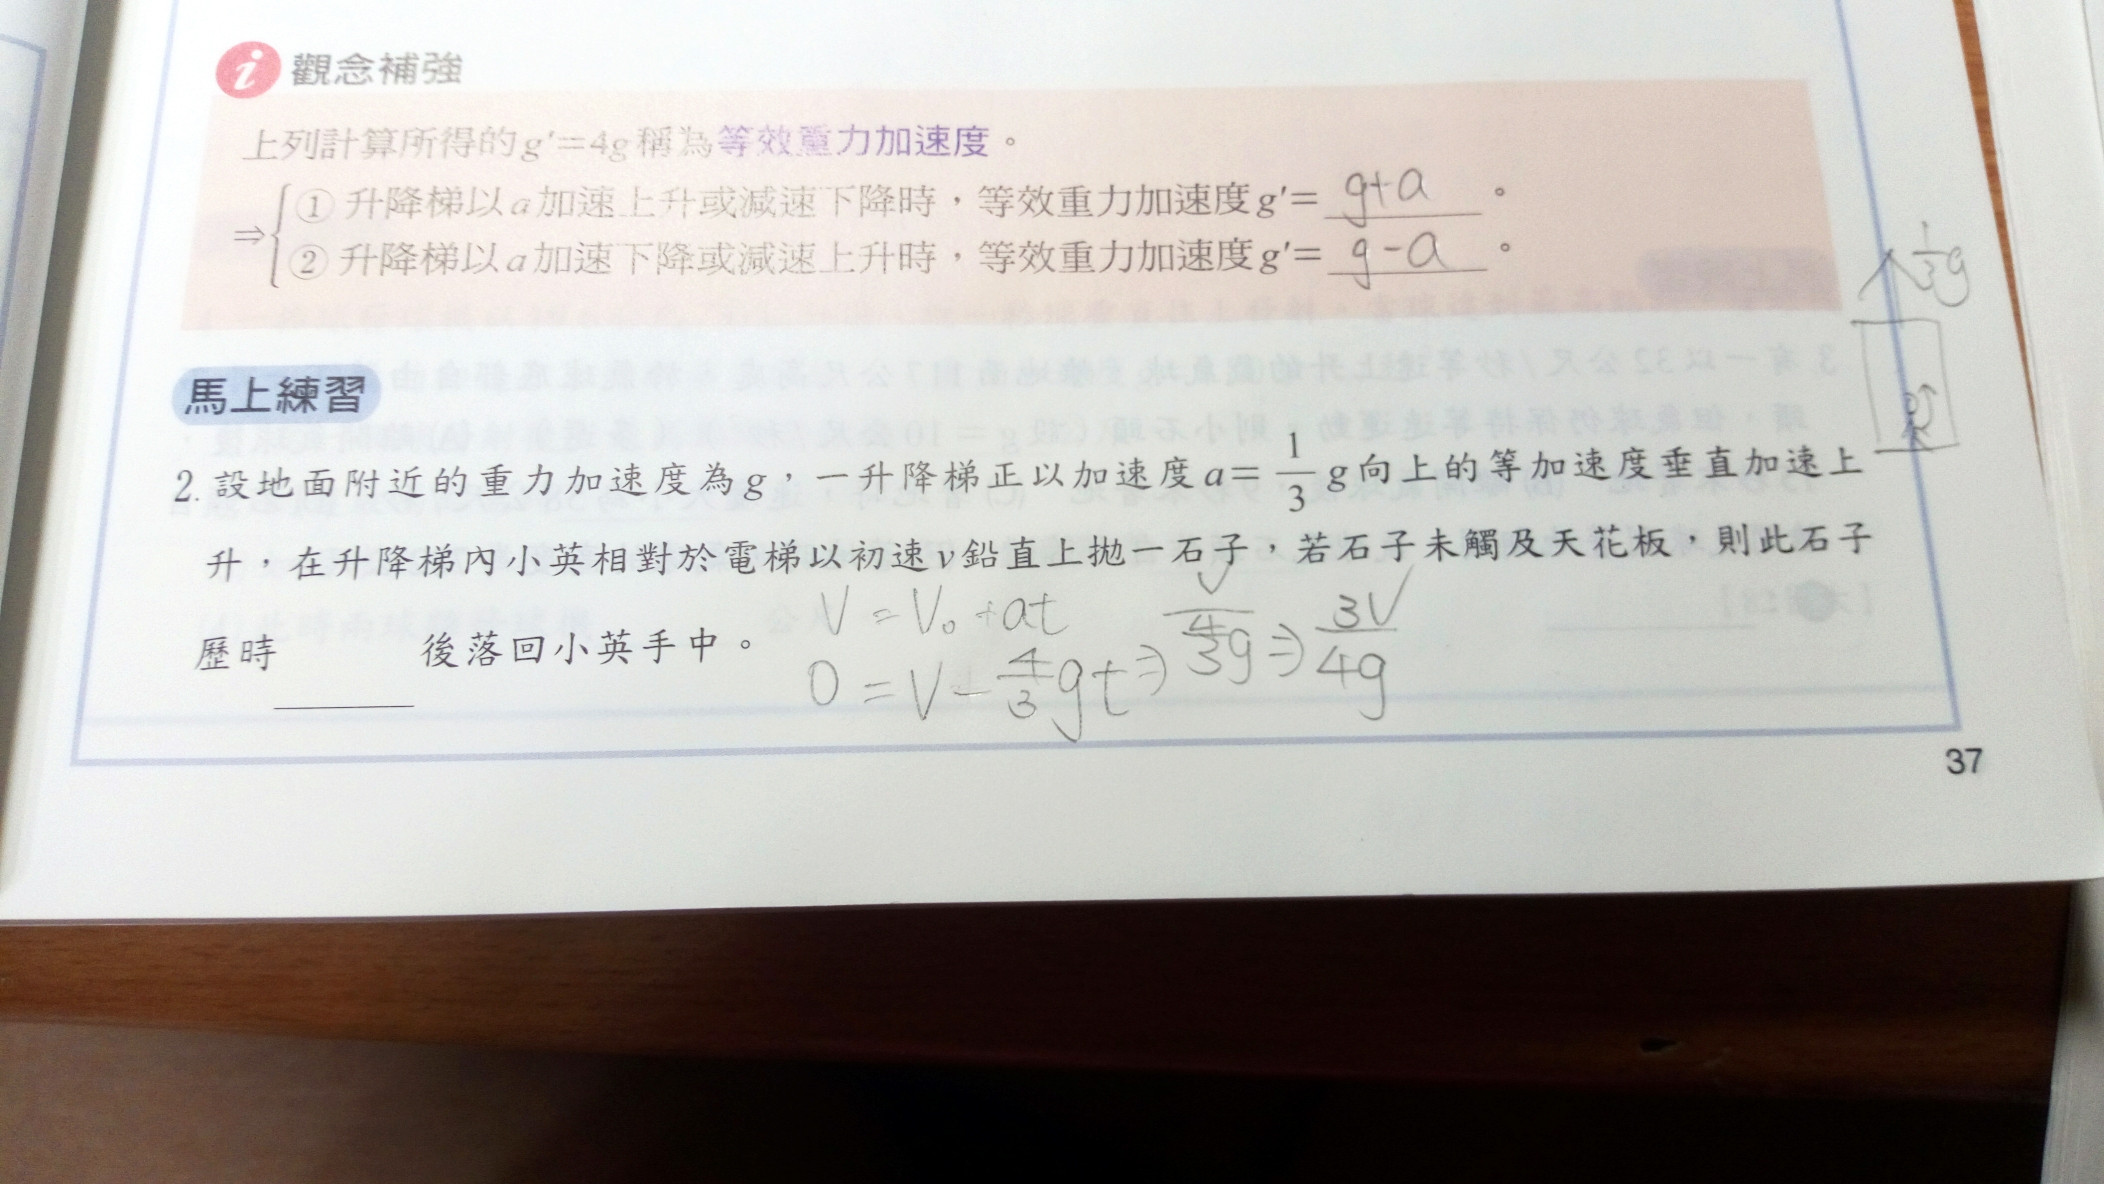 觀念補強
上列計算所得的g′=4g稱為等效重力加速度。
⇒{①升降梯以a加速上升或減速下降時,等效重力加速度g′= g+a 。
②升降梯以a加速下降或減速上升時,等效重力加速度g′= g-a 。
1/3 g
馬上練習
2. 設地面附近的重力加速度為g,一升降梯正以加速度a= 1/3 g向上的等加速度垂直加速上
升,在升降梯內小英相對於電梯以初速v鉛直上拋一石子,若石子未觸及天花板,則此石子
歷時______後落回小英手中。
V = V₀ + at
0 = V - 4/3 gt ⇒ V / 4/3 g ⇒ 3V/4g
37